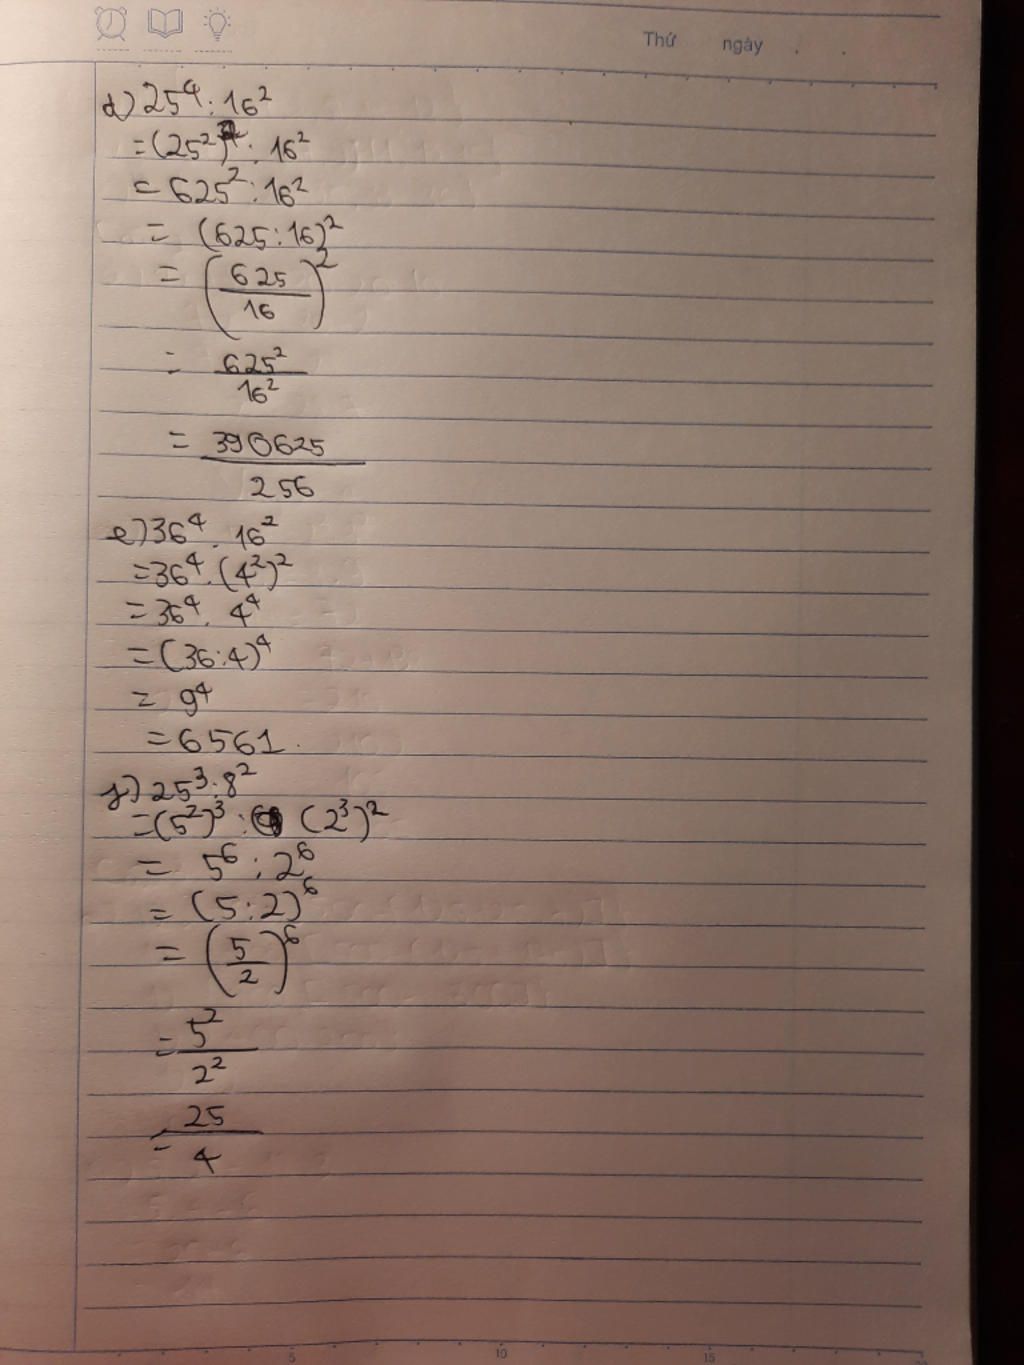 Thứ ngày
d) 25⁴ : 16²
= (25²)² : 16²
= 625² : 16²
= (625 : 16)²
= (625/16)²
= 625²/16²
= 390625/256
e) 36⁴ . 16²
= 36⁴ . (4²)²
= 36⁴ . 4⁴
= (36 : 4)⁴
= 9⁴
= 6561.
f) 25³ : 8²
= (5²)³ : (2³)²
= 5⁶ : 2⁶
= (5 : 2)⁶
= (5/2)⁶
= 5²/2²
= 25/4
5 10 15